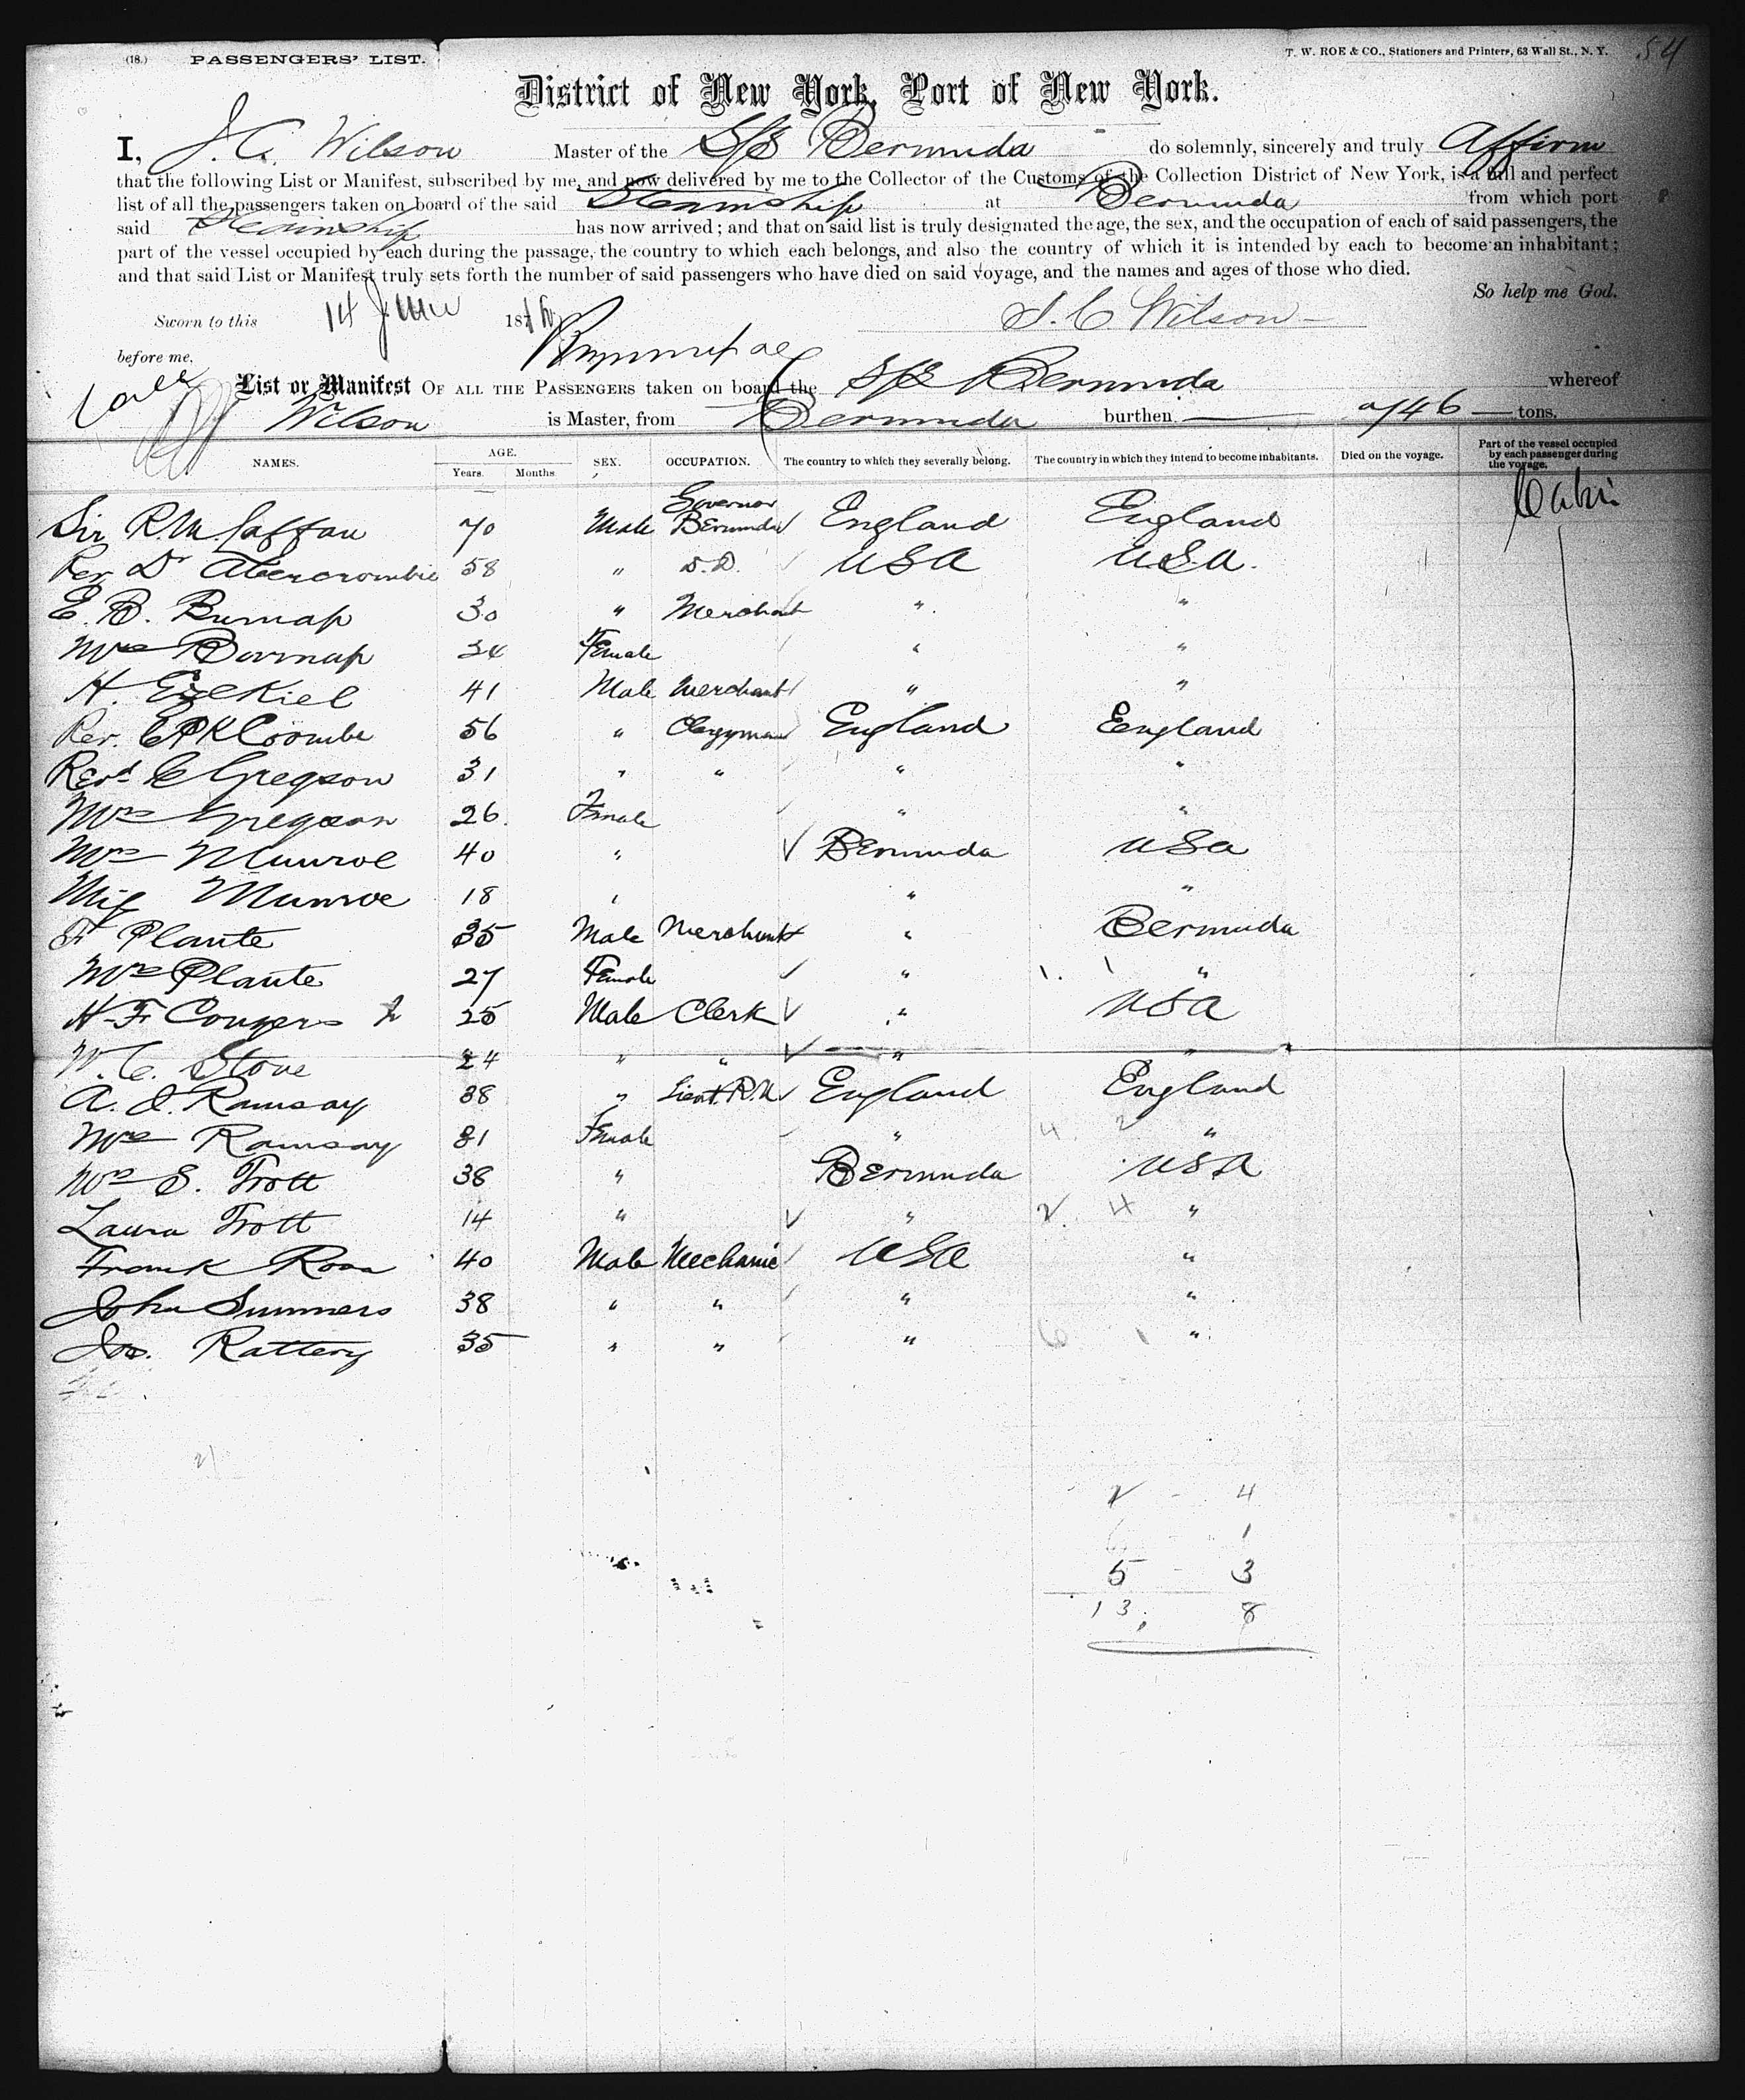 (18.) PASSENGERS' LIST. T. W. ROE & CO., Stationers and Printers, 63 Wall St., N. Y. 54
District of New York, Port of New York.
I, J. C. Wilson Master of the S/S Bermuda do solemnly, sincerely and truly Affirm
that the following List or Manifest, subscribed by me, and now delivered by me to the Collector of the Customs of the Collection District of New York, is a full and perfect
list of all the passengers taken on board of the said Steamship at Bermuda from which port
said Steamship has now arrived; and that on said list is truly designated the age, the sex, and the occupation of each of said passengers, the
part of the vessel occupied by each during the passage, the country to which each belongs, and also the country of which it is intended by each to become an inhabitant;
and that said List or Manifest truly sets forth the number of said passengers who have died on said voyage, and the names and ages of those who died.
So help me God.
Sworn to this 14 June 187 J. C Wilson
before me,
List or Manifest OF ALL THE PASSENGERS taken on board the S/S Bermuda whereof
Wilson is Master, from Bermuda burthen 746 tons.
NAMES. AGE. Years. Months. SEX. OCCUPATION. The country to which they severally belong. The country in which they intend to become inhabitants. Died on the voyage. Part of the vessel occupied by each passenger during the voyage.
Sir R. M. Laffan 70 Male Governor Bermuda England England Cabin
Rev Dr Abercrombie 58 " D.D. USA U.S.A.
E. B. Burnap 30 " Merchant " "
Mrs Burnap 34 Female " "
H. Ezekiel 41 Male Merchant " "
Rev. C P K Coombe 56 " Clergyman England England
Revd C Gregson 31 " " " "
Mrs Gregson 26 Female " "
Mrs Munroe 40 " Bermuda USA
Miss Munroe 18 " " "
F Plante 35 Male Merchant " Bermuda
Mrs Plante 27 Female " "
H F Conyers 25 Male Clerk " USA
W. C. Stone 24 " " " "
A. J. Ramsay 38 " Lieut. R.N England England
Mrs Ramsay 31 Female " 4 2 "
Mrs S. Trott 38 " Bermuda USA
Laura Trott 14 " " 2 4 "
Frank Ross 40 Male Mechanic USA "
John Summers 38 " " " "
Jos. Rattery 35 " " " 6 1 "
21
2 - 4
6 - 1
5 - 3
13. 8